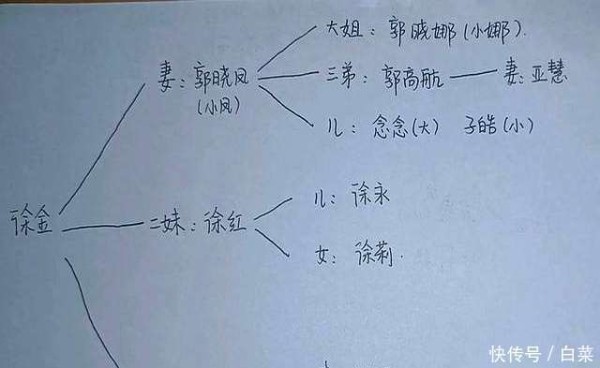 大姐：郭晓娜(小娜).
妻：郭晓凤
(小凤)
三弟：郭高航——妻：亚慧
儿：念念(大) 子皓(小)
徐金
二妹：徐红
儿：徐永
女：徐莉.
快传号/白菜